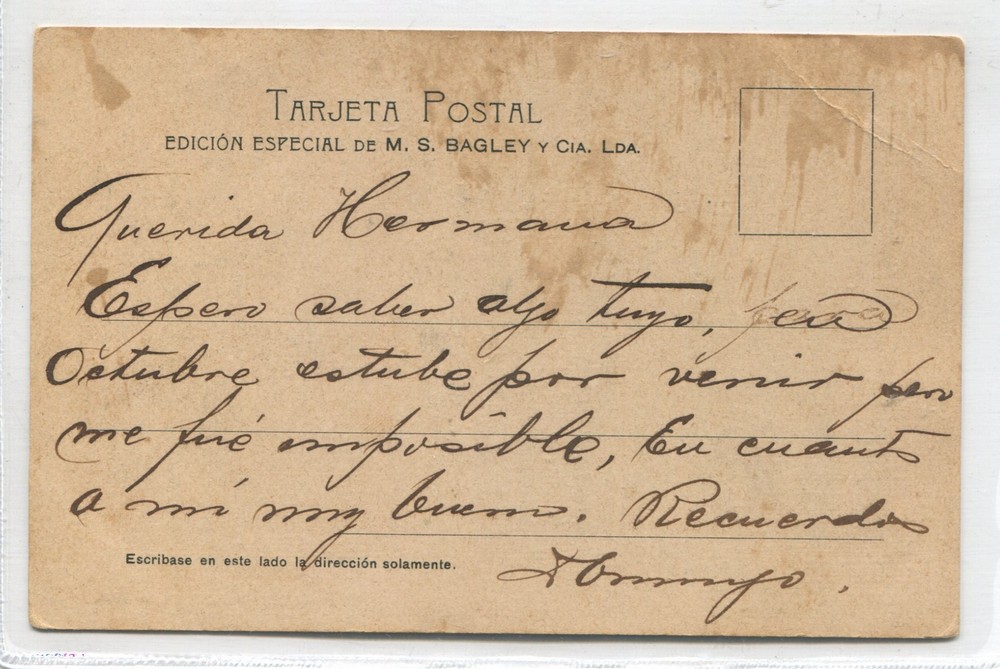 TARJETA POSTAL
EDICIÓN ESPECIAL DE M. S. BAGLEY Y CIA. LDA.
Querida Hermana
Espero saber algo tuyo,
Octubre estube por venir pero
me fué imposible, En cuanto
a mí muy bueno. Recuerdos
Escribase en este lado la dirección solamente.
Domingo.